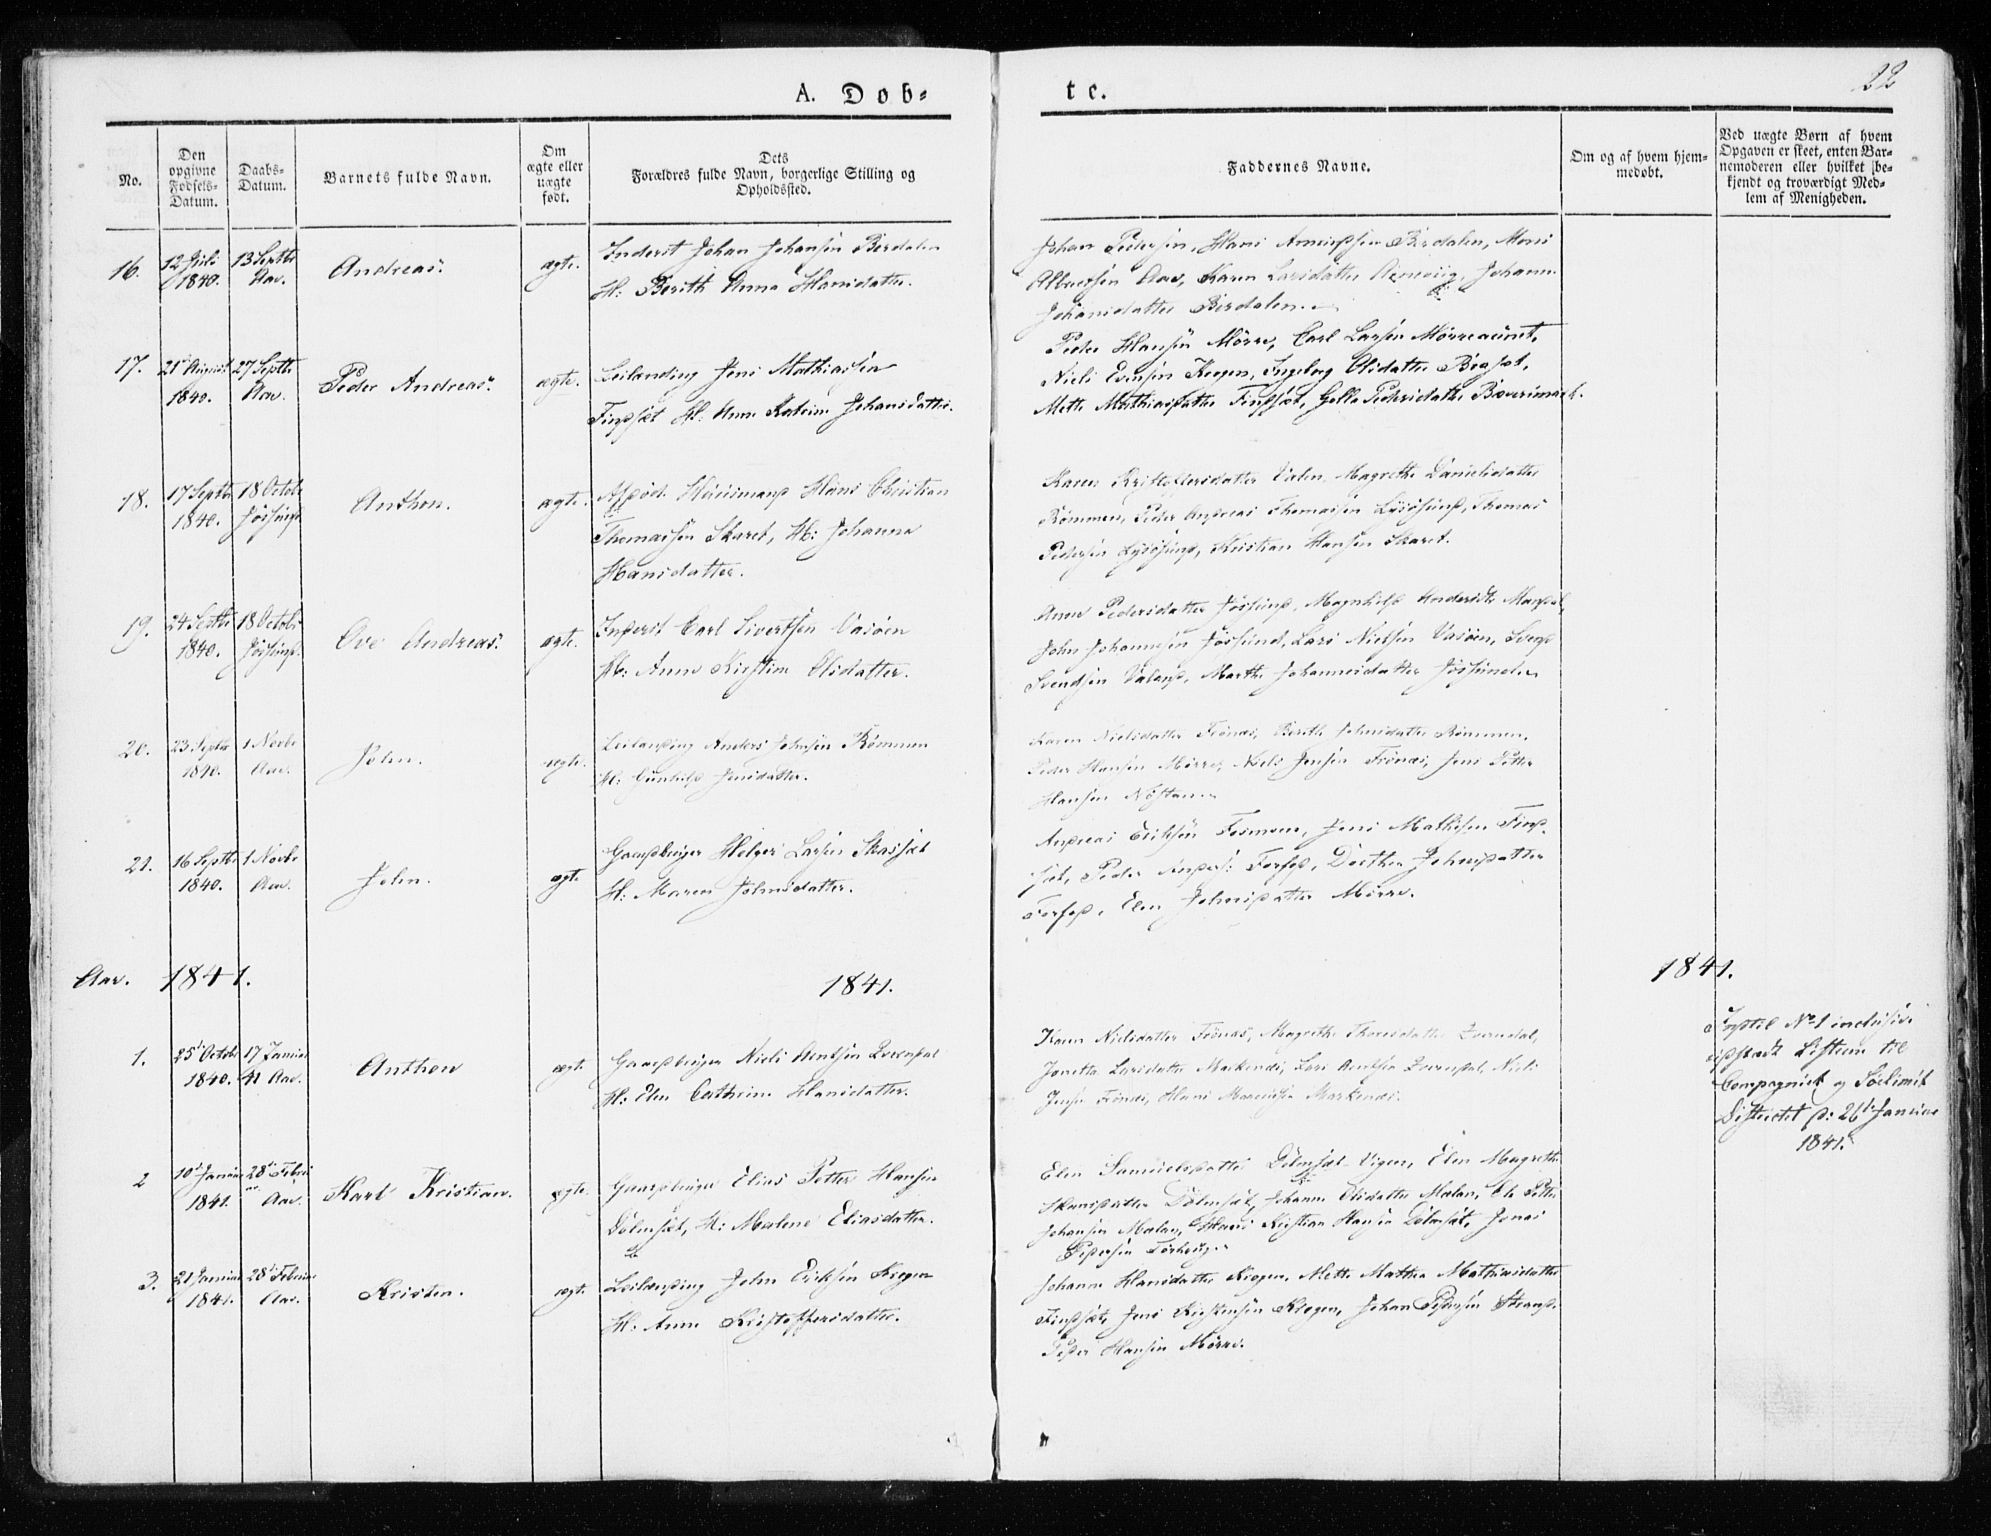 22
A. Døb-
te.
No.
Den
opgivne
Fødsels-
Datum.
Daabs-
Datum.
Barnets fulde Navn.
Om
ægte eller
uægte
født.
Dets
Forældres fulde Navn, borgerlige Stilling og
Opholdssted.
Faddernes Navne.
Om og af hvem hjem-
medøbt.
Ved uægte Børn af hvem
Opgaven er skeet, enten Bar-
nemoderen eller hvilket be-
kjendt og troværdigt Med-
lem af Menigheden.
16. 12 Juli 13 Septbr
1840. Aae.
Andreas.
ægte.
Inderst Johan Johansen Berdalen
H: Berith Anna Hansdatter.
Johan Pedersen, Hans Berdalen, Mons
Albertsen Aae, Karen Larsdatter Johanna
Johansdatter Berdalen.
17. 21 August 27 Septbr
1840. Aae
Peder Andreas.
ægte.
Leilending Jens Mathiassen
Findsæt H. Ane Katrine Johansdatter.
Peder Hansen Mörre, Carl Larsen Mörreaunet,
Niels Evensen Krogen, Ingeborg Olsdatter
Mette Mathiasdatter Findsæt, Pedersdatter
18. 17 Septbr 18 Octobr
1840. Jössund
Anthon.
ægte.
Afsöd. Huusmand Hans Christian
Thomassen Skaret, H: Johanna
Hansdatter.
Karen Kristoffersdatter Valen, Magrethe Danielsdatter
Römmen, Peder Andreas Thomassen Lysösund, Thomas
Pedersen Lysösund, Kristian Hansen Skaret.
19. 24 Septbr 18 Octobr
1840. Jössund.
Ove Andreas.
ægte.
Inderst Carl Sivertsen Vasöen
H: Anne Kirstine Olsdatter.
Anne Pedersdatter Jössund, Magnhild
John Johannesen Jössund, Lars Nielsen Vasöen, Svend
Svendsen Valand, Marthe Johannesdatter Jössund.
20. 23 Septbr 1 Novbr
1840. Aae.
John.
ægte.
Leilending Anders Johnsen Römmen
H: Gunhild Jensdatter.
Karen Nielsdatter Frönæs, Berith Johnsdatter Römmen,
Peder Hansen Mörre, Niels Jensen Frönæs, Jens Petter
Hansen
21. 16 Septbr 1 Novbr
1840. Aae.
John.
ægt.
Gaardbruger Helger Larsen
H: Maren Johnsdatter.
Andreas Eriksen Jens Mathisen Find-
sæt, Peder Anders: Dorthea Johnsdatter
Elen Johnsdatter Mörre.
Aar. 1841. 1841. 1841.
1. 25 Octobr 17 Januar
1840. 41 Aae.
Anthon
ægt.
Gaardbruger Niels Arntsen
H: Elen Cathrine Hansdatter.
Karen Nielsdatter Frönæs, Magrethe
Jonetta Larsdatter Markenæs, Lars Arntsen Niels
Jensen Frönæs, Hans Markenæs.
Indtil No 1 inclusive
Listerne til
Compagniet og Sölimit
Districtet d: 26 Januar
1841.
2 10 Januar 28 Febru
1841. ar. Aae.
Karl Kristian.
ægte.
Gaardbruger Elias Petter Hansen
Dölmsæt, H: Malene Eliasdatter.
Elen Samuelsdatter Dölmsæt Elen Magrethe
Dölmsæt, Johanna Olsdatter Malan, Ole Petter
Johansen Malan, Hans Kristian Hansen Dölmsæt, Jonas
Pedersen
3. 21 Januar 28 Februar
1841. Aae.
Kristen.
ægt.
Leilending John Eriksen Krogen
H: Anne Kristoffersdatter.
Johanna Hansdatter Krogen, Mette Mathea Mathiasdatter
Findsæt, Jens Kristensen Krogen, Johan Pedersen Strand.
Peder Hansen Mörre.